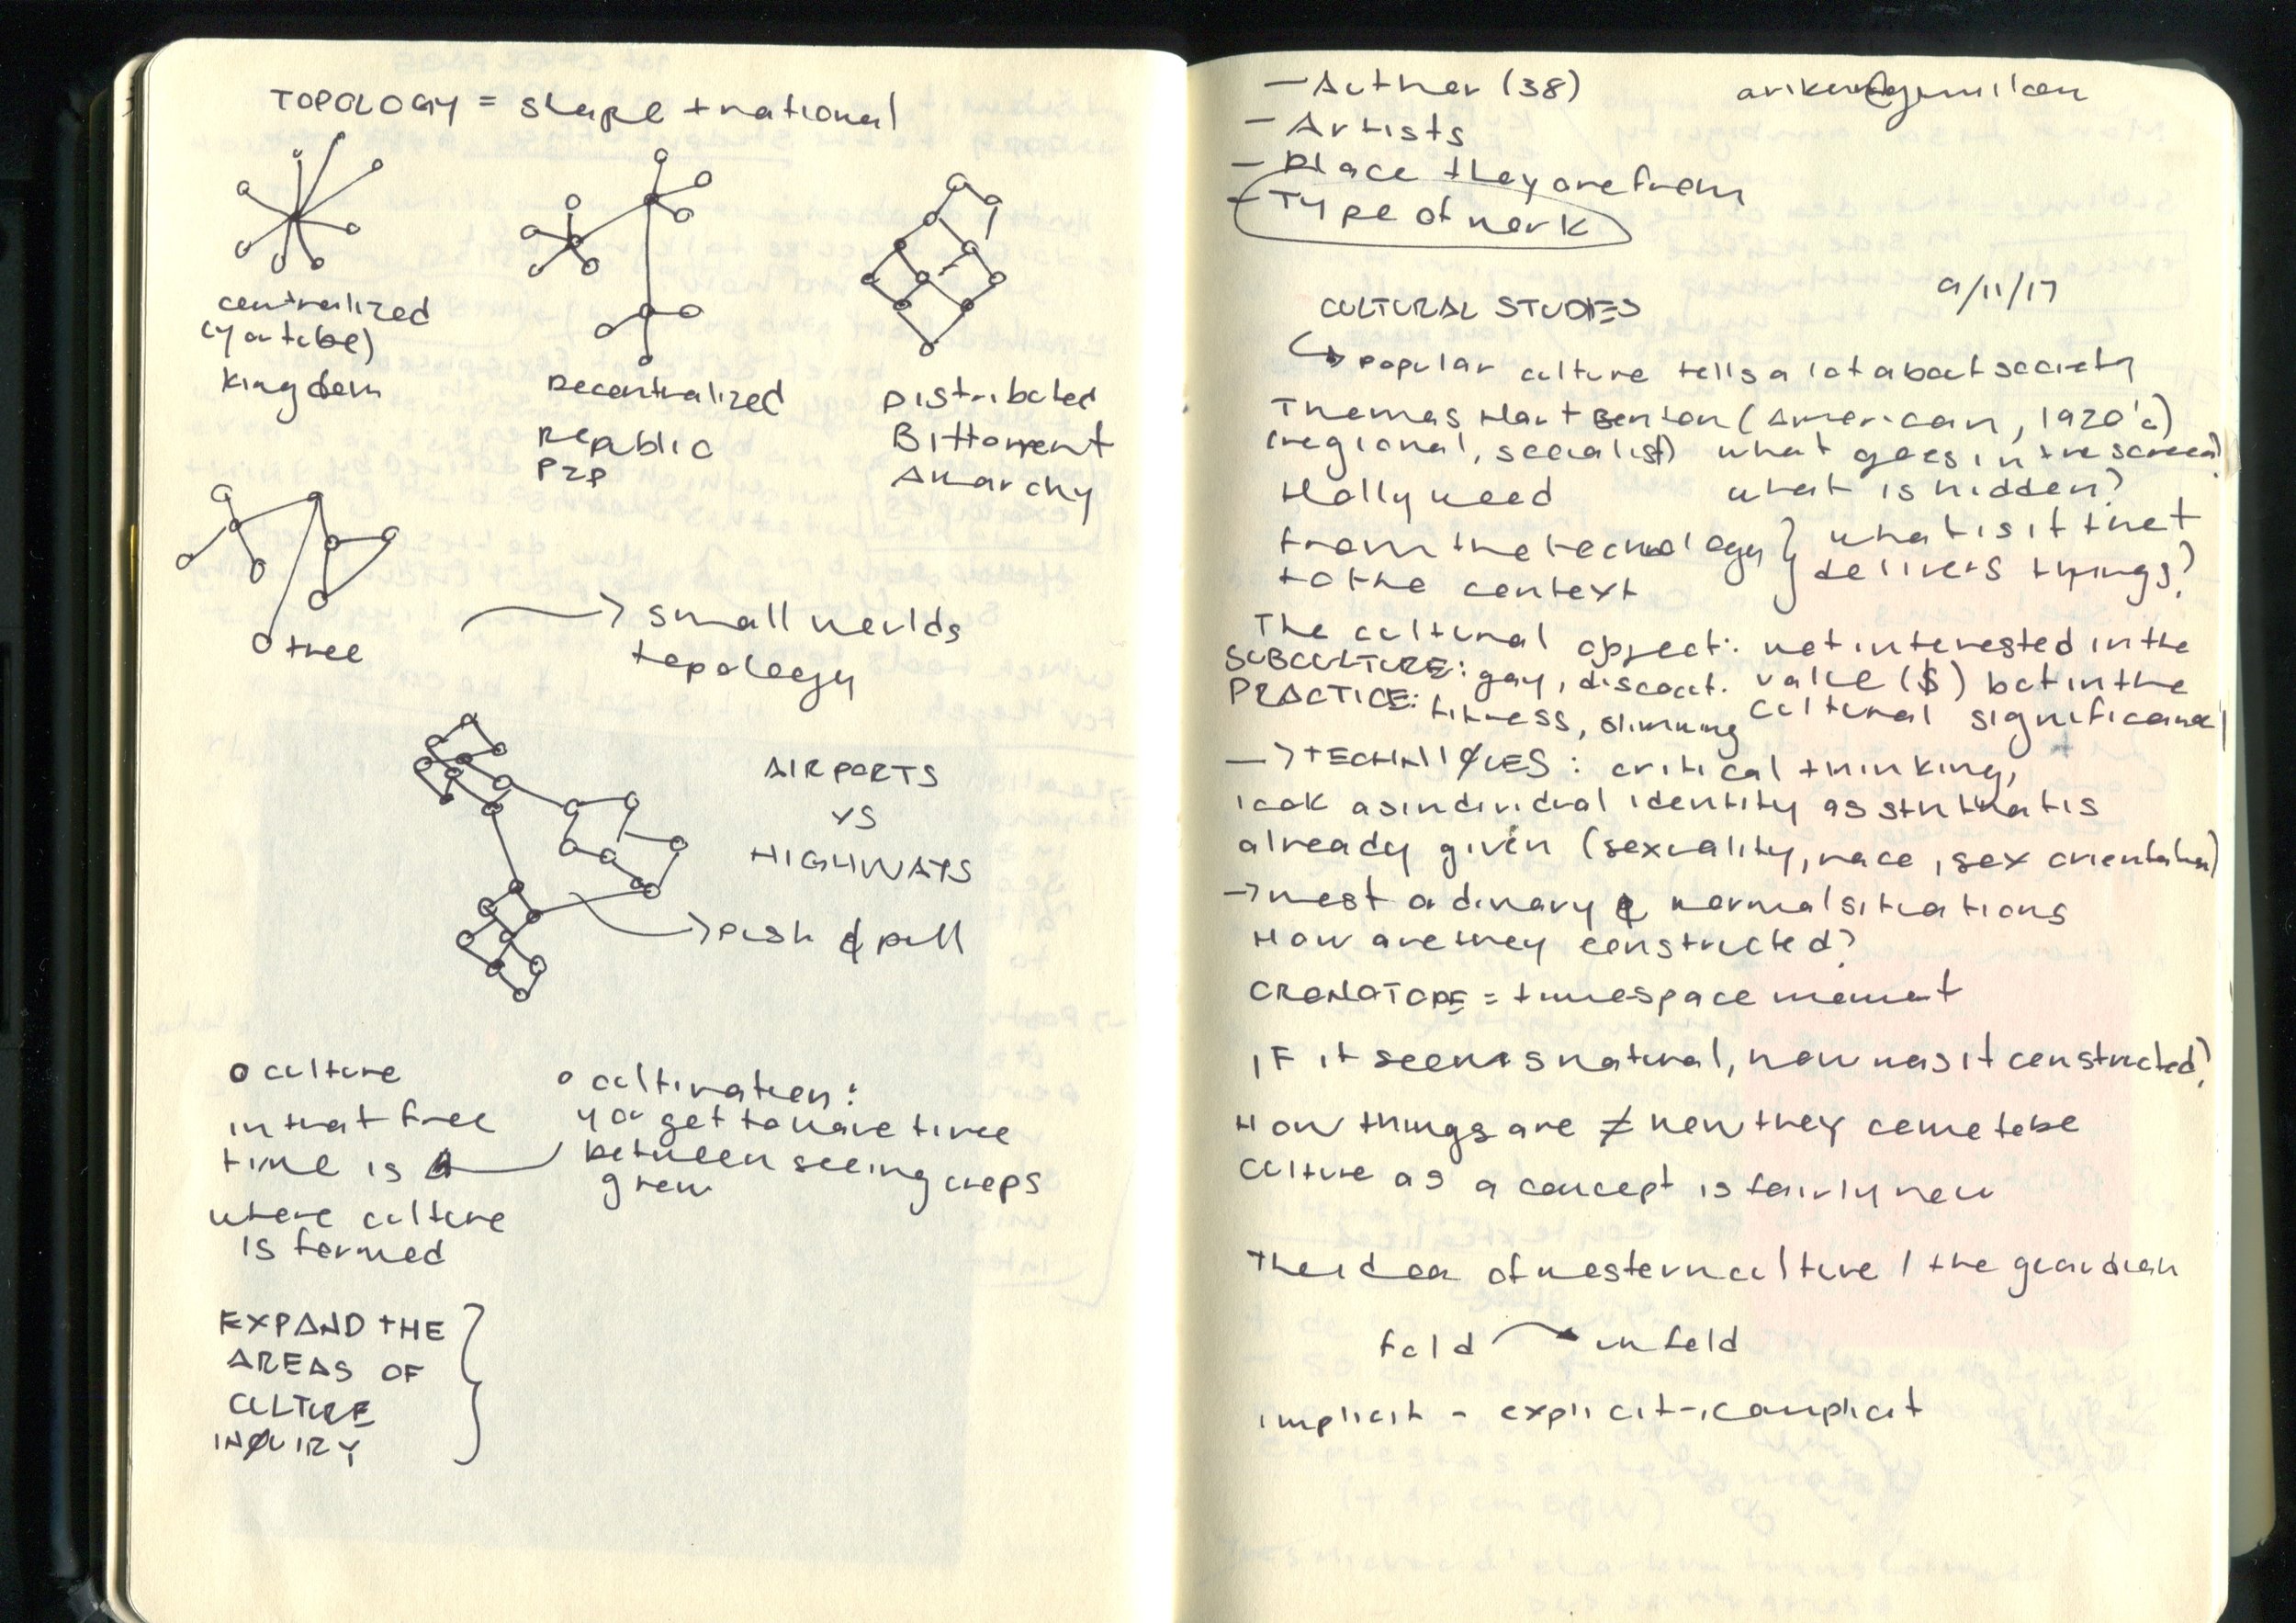 TOPOLOGY = shape + rational
centralized
(youtube)
kingdom
Decentralized
Republic
P2P
Distributed
Bittorrent
Anarchy
tree
small worlds
topology
AIRPORTS
VS
HIGHWAYS
push & pull
culture
in that free
time is
where culture
is formed
cultivation:
you get to have time
between seeing crops
grow
EXPAND THE
AREAS OF
CULTURE
INQUIRY
- Author (38)
- Artists
- Place they are from
- Type of work
9/11/17
CULTURAL STUDIES
popular culture tells a lot about society
Thomas Hart Benton (American, 1920's)
(regional, socialist) what goes in the screen?
Hollywood what is hidden?
from the tecnology } what is it that
to the context } delivers things?
The cultural object: not interested in the
SUBCULTURE: gay, value ($) but in the
PRACTICE: fitness, slimming cultural significance
→ TECHNIQUES: critical thinking,
look as individual identity as sth that is
already given (sexuality, race, sex orientation)
→ most odinary & normal situations
How are they constructed?
CRONOTOPE = time-space moment
IF it seems natural, how was it constructed?
How things are ≠ how they come to be
culture as a concept is fairly new
The idea of western culture / the guardian
fold unfold
implicit - explicit - complicit